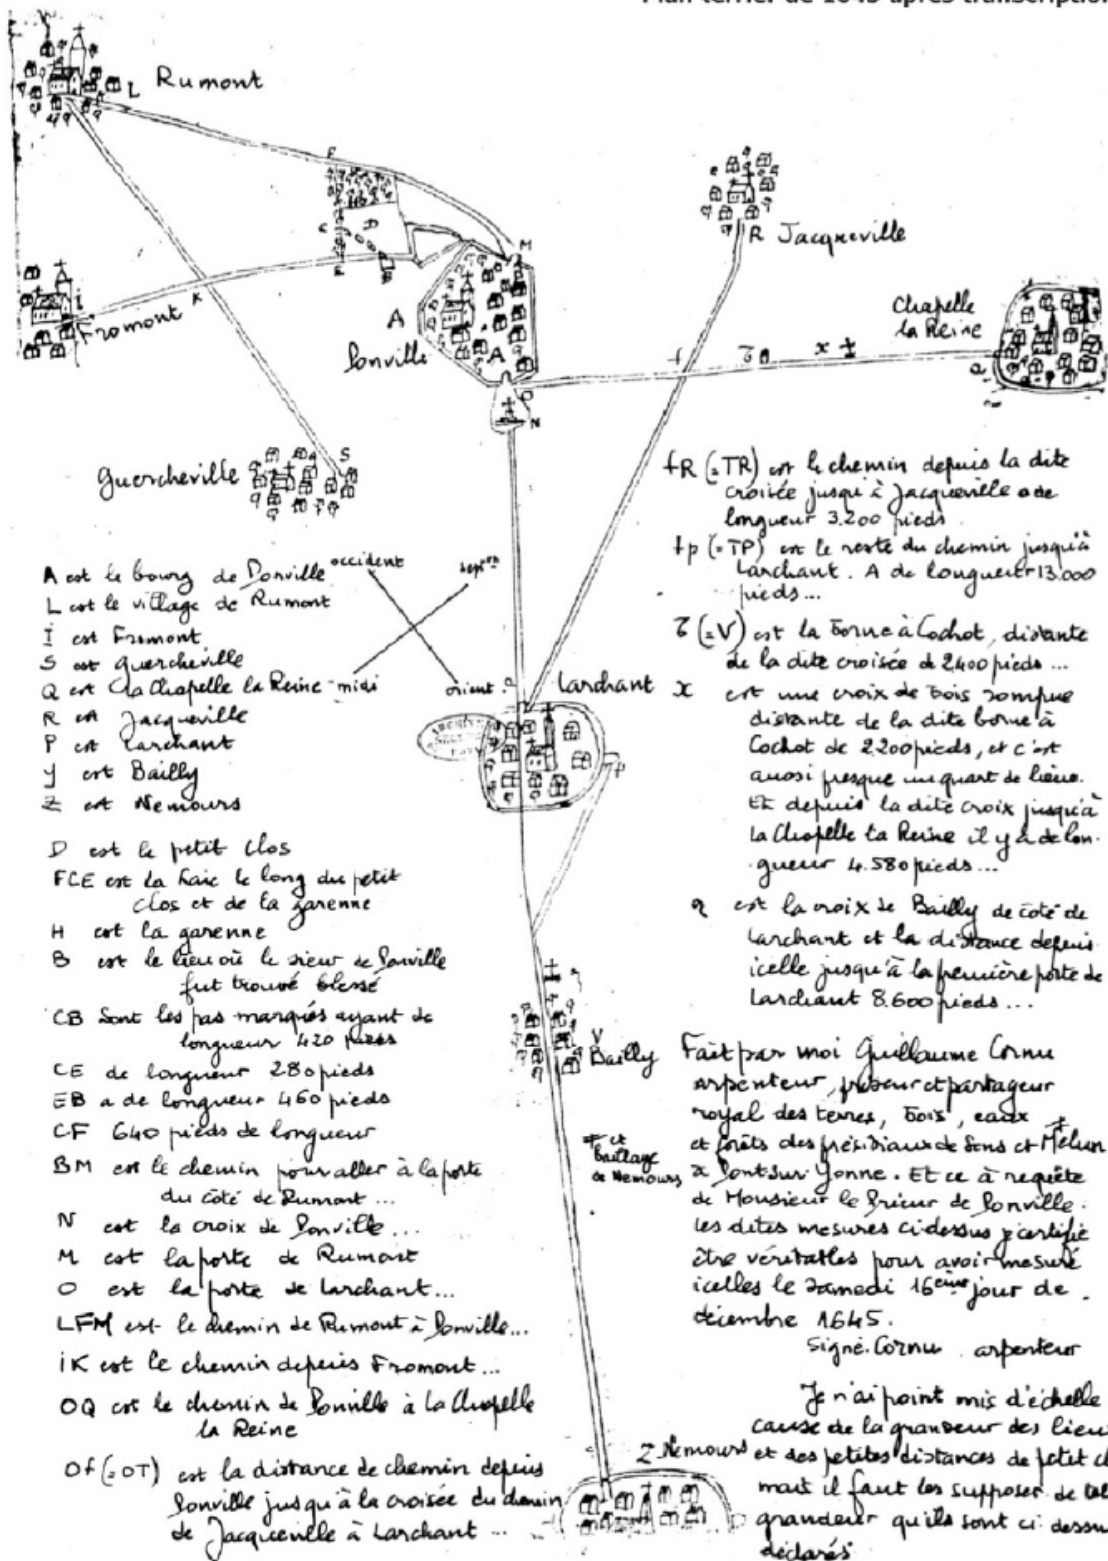 Plan terrier de 1645 après transcription
L Rumont
F
R Jacqueville
M
C
D
H
E
B
K
I
Fromont
A
Bonville
A
O
N
f
x
Chapelle
la Reine
Q
S
Guercheville
occident
septen
midi
orient
Larchant
P
A est le bourg de Bonville
L est le village de Rumont
I est Fromont
S est Guercheville
Q est La Chapelle la Reine
R est Jacqueville
P est Larchant
Y est Bailly
Z est Nemours
D est le petit clos
FCE est la haie le long du petit
clos et de la garenne
H est la garenne
B est le lieu où le sieur de Bonville
fut trouvé blessé
CB Sont les pas marqués ayant de
longueur 420 pieds
CE de longueur 280 pieds
EB a de longueur 460 pieds
CF 640 pieds de longueur
BM est le chemin pour aller à la porte
du côté de Rumont ...
N est la croix de Bonville ...
M est la porte de Rumont
O est la porte de Larchant ...
LFM est le chemin de Rumont à Bonville ...
iK est le chemin depuis Fromont ...
OQ est le chemin de Bonville à La Chapelle
la Reine
Of (=OT) est la distance de chemin depuis
Bonville jusqu'à la croisée du chemin
de Jacqueville à Larchant ...
fR (=TR) est le chemin depuis la dite
croisée jusqu'à Jacqueville a de
longueur 3.200 pieds
fp (=TP) est le reste du chemin jusqu'à
Larchant. A de longueur 13.000
pieds ...
(=V) est la borne à Cochot, distante
de la dite croisée de 2400 pieds ...
x est une croix de bois rompue
distante de la dite borne à
Cochot de 2200 pieds, et c'est
aussi presque un quart de lieue.
Et depuis la dite croix jusqu'à
La Chapelle la Reine il y a de lon-
gueur 4.580 pieds ...
est la croix de Bailly de côté de
Larchant et la distance depuis
icelle jusqu'à la première porte de
Larchant 8.600 pieds ...
V
Bailly
Fait par moi Guillaume Cornu
arpenteur, priseur et partageur
royal des terres, bois, eaux
et forêts des présidiaux de Sens et Melun
à Pont sur Yonne. Et ce à requête
de Monsieur le Prieur de Bonville.
les dites mesures ci-dessus je certifie
être véritables pour avoir mesuré
icelles le samedi 16ème jour de
décembre 1645.
Signé. Cornu arpenteur
et
baillage
de Nemours
Je n'ai point mis d'échelle
cause de la grandeur des lieux
et des petites distances de petit
mais il faut les supposer de
grandeur qu'ils sont ci dessus
déclarés
Z Nemours